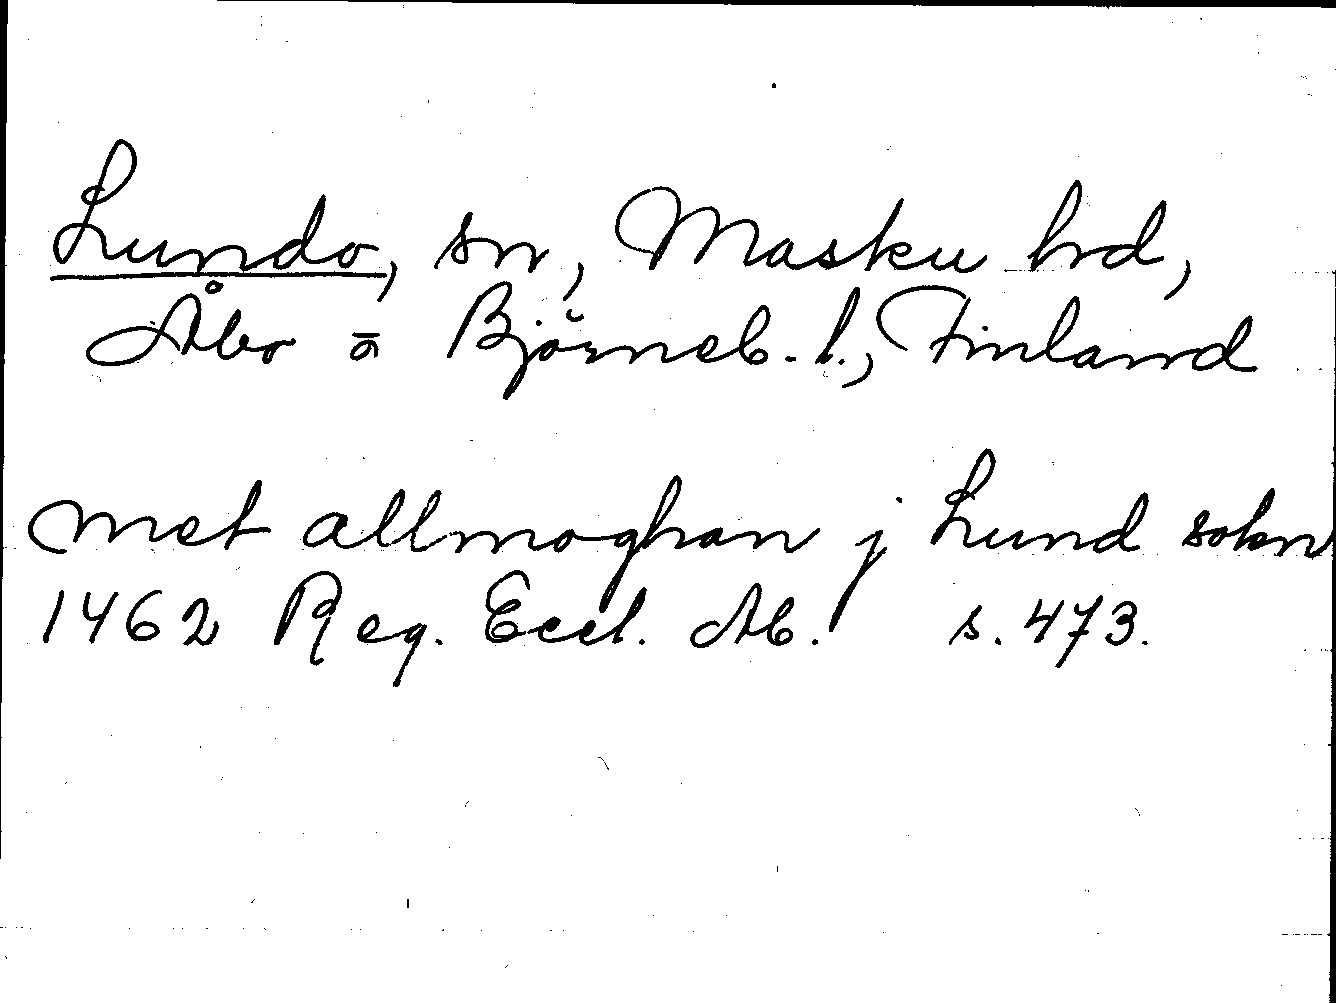 Lundo, sn, Masku hd,
Åbo o Björneb. l., Finland
met allmoghan j Lund sokn
1462 Reg. Eccl. Ab. s. 473.